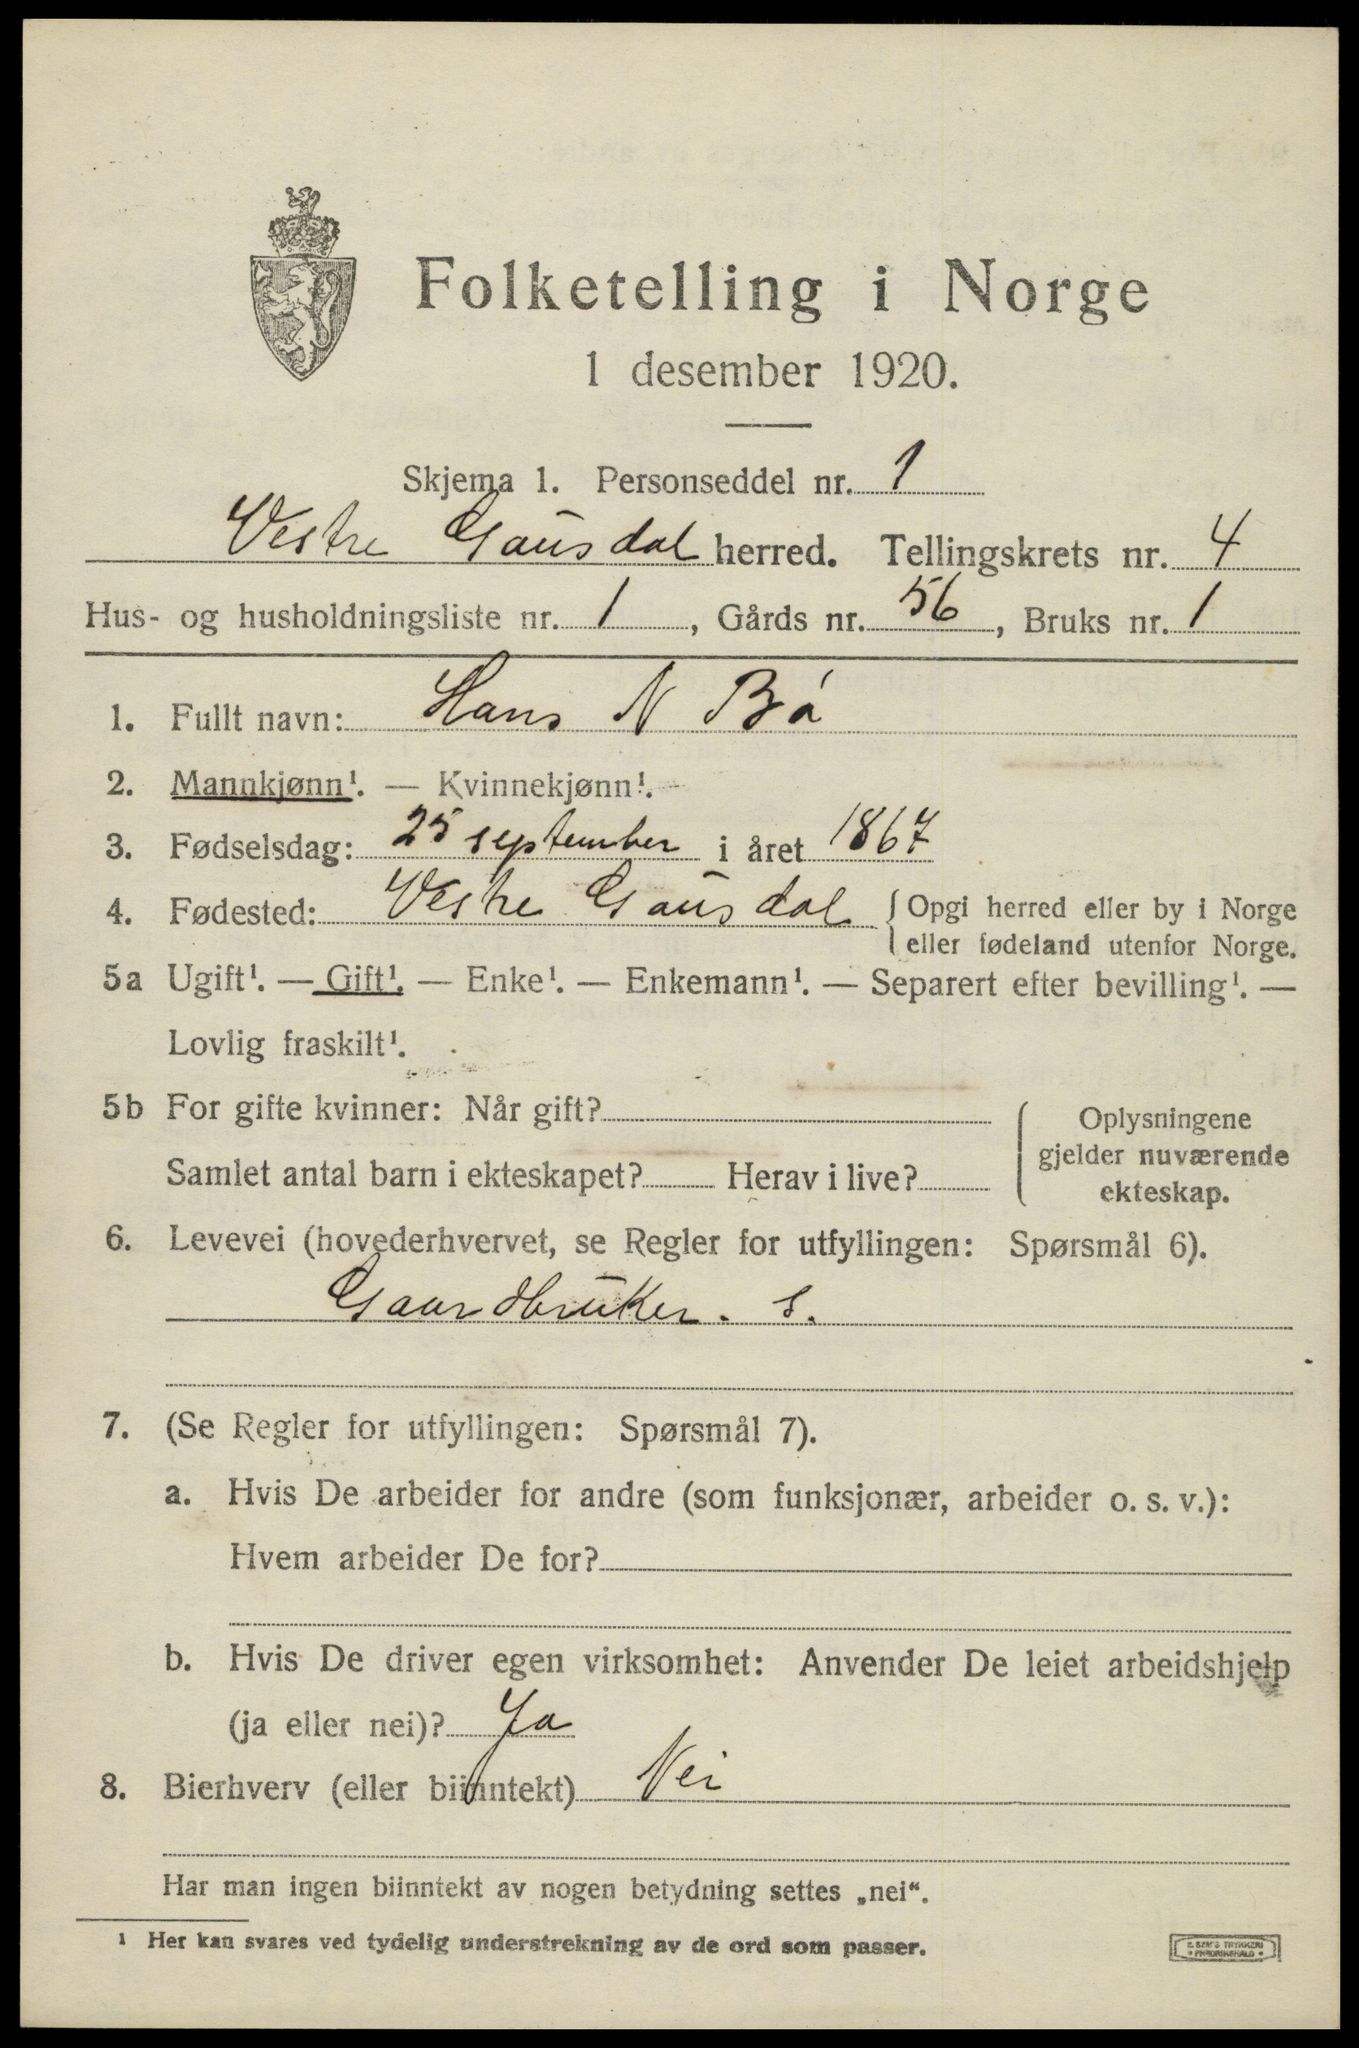 Folketelling i Norge
1 desember 1920.
Skjema 1. Personseddel nr. 1
Vestre Gausdal herred. Tellingskrets nr. 4
Hus- og husholdningsliste nr. 1, Gårds nr. 56, Bruks nr. 1
1. Fullt navn: Hans N Bø
2. Mannkjønn¹. — Kvinnekjønn¹.
3. Fødselsdag: 25 september i året 1867
4. Fødested: Vestre Gausdal {Opgi herred eller by i Norge
eller fødeland utenfor Norge.
5a Ugift¹. — Gift¹. — Enke¹. — Enkemann¹. — Separert efter bevilling¹. —
Lovlig fraskilt¹.
5b For gifte kvinner: Når gift?
Samlet antal barn i ekteskapet? Herav i live?
Oplysningene
gjelder nuværende
ekteskap.
6. Levevei (hovederhvervet, se Regler for utfyllingen: Spørsmål 6).
Gaardbruker. S.
7. (Se Regler for utfyllingen: Spørsmål 7).
a. Hvis De arbeider for andre (som funksjonær, arbeider o. s. v.):
Hvem arbeider De for?
b. Hvis De driver egen virksomhet: Anvender De leiet arbeidshjelp
(ja eller nei)? Ja
8. Bierhverv (eller biinntekt) Nei
Har man ingen biinntekt av nogen betydning settes „nei“.
¹ Her kan svares ved tydelig understrekning av de ord som passer.
E. SEM'S TRYKKERI
• FREDRIKSHALD •